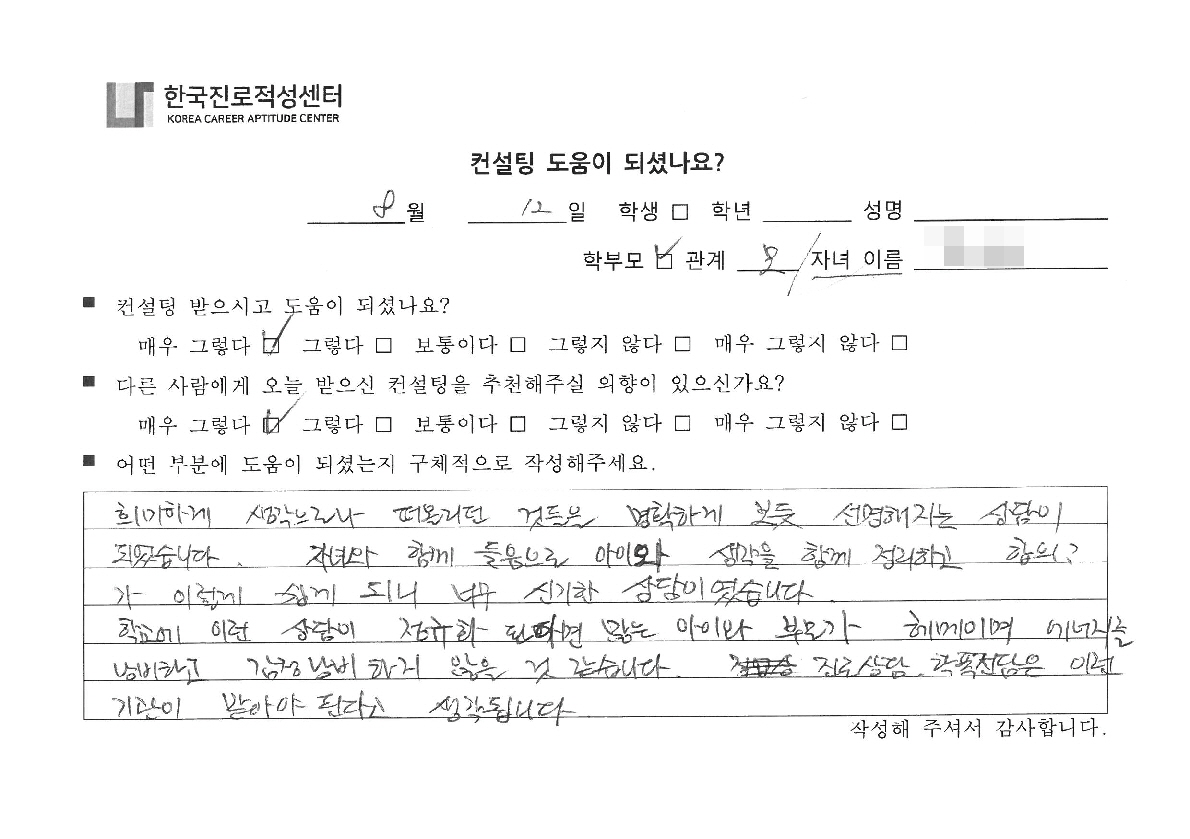 한국진로적성센터
KOREA CAREER APTITUDE CENTER
컨설팅 도움이 되셨나요?
8월 12일 학생 □ 학년 성명
학부모 ☑ 관계 모 / 자녀 이름
■ 컨설팅 받으시고 도움이 되셨나요?
매우 그렇다 ☑ 그렇다 □ 보통이다 □ 그렇지 않다 □ 매우 그렇지 않다 □
■ 다른 사람에게 오늘 받으신 컨설팅을 추천해주실 의향이 있으신가요?
매우 그렇다 ☑ 그렇다 □ 보통이다 □ 그렇지 않다 □ 매우 그렇지 않다 □
■ 어떤 부분에 도움이 되셨는지 구체적으로 작성해주세요.
희미하게 생각으로나 떠올리던 것들을 명확하게 보듯 선명해지는 상담이
되었습니다. 자녀와 함께 들음으로 아이와 생각을 함께 정리하고 합의?
가 이렇게 쉽게 되니 너무 신기한 상담이였습니다.
학교에 이런 상담이 정규화 된다면 많은 아이와 부모가 헤메이며 에너지를
낭비하고 감정낭비하지 않을 것 같습니다. 진로상담, 학폭전담은 이런
기관이 맡아야 된다고 생각됩니다.
작성해 주셔서 감사합니다.